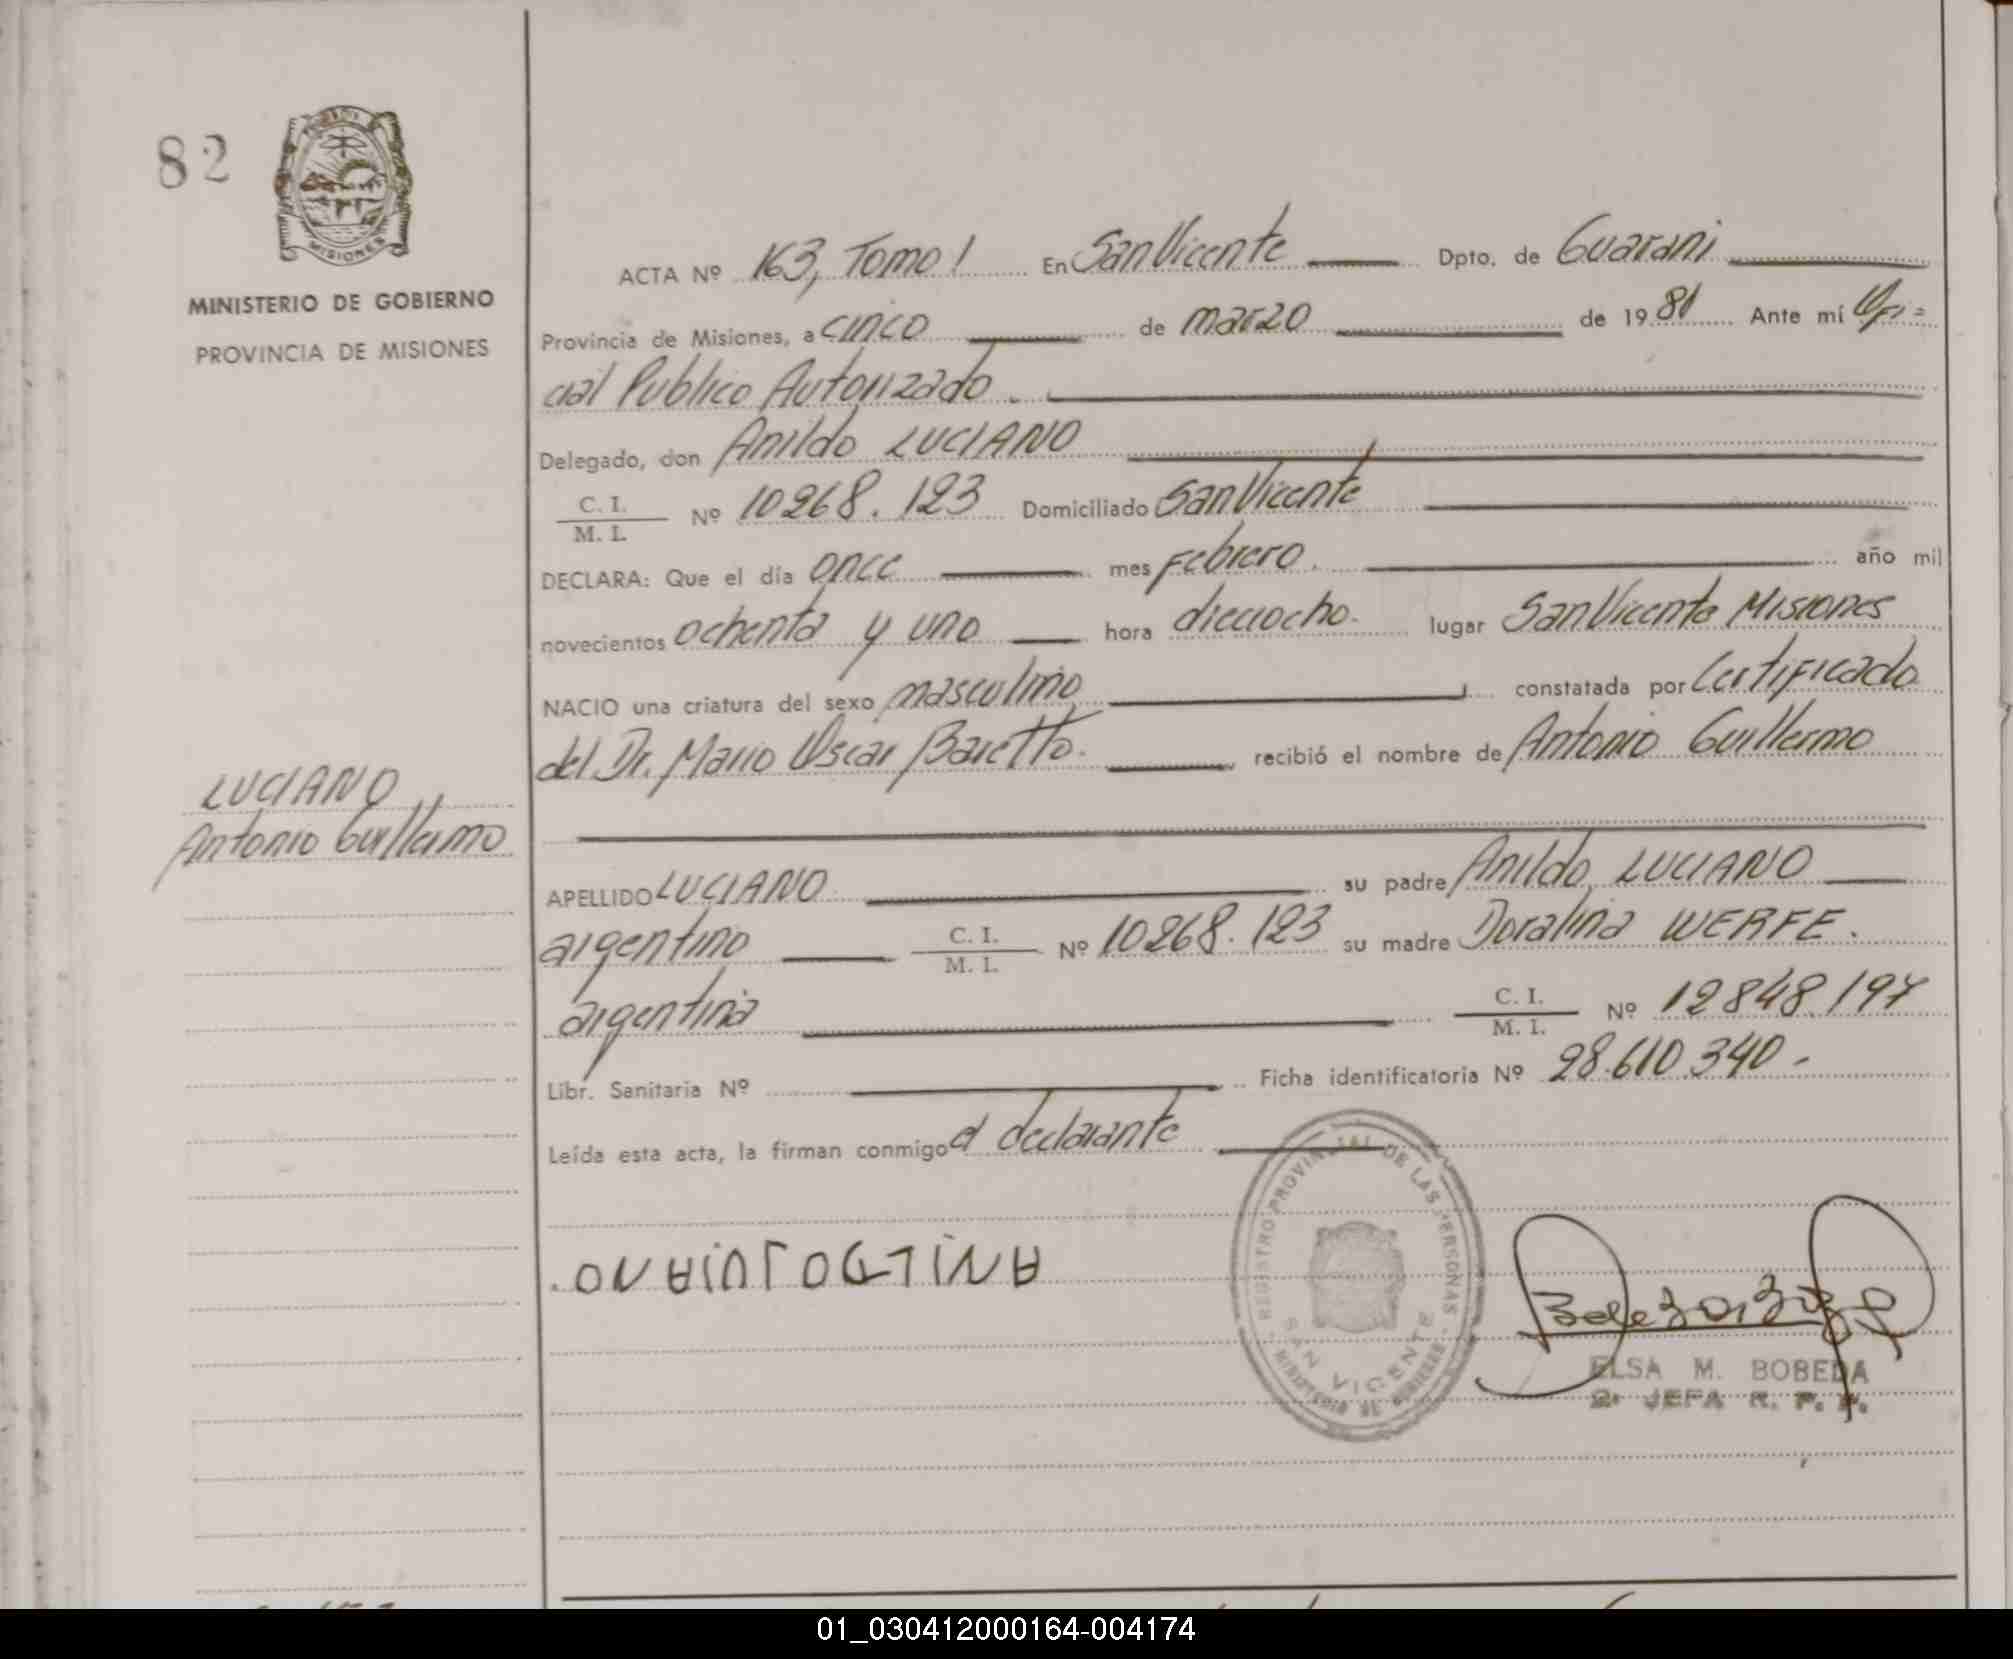 82
MISIONES
MINISTERIO DE GOBIERNO
PROVINCIA DE MISIONES
LUCIANO
Antonio Guillermo
ACTA Nº 163, Tomo I En San Vicente Dpto. de Guarani
Provincia de Misiones, a cinco de marzo de 1981 Ante mí Ofi=
cial Publico Autorizado.
Delegado, don Anildo LUCIANO
C. I. / M. I. Nº 10268.123 Domiciliado San Vicente
DECLARA: Que el día once mes Febrero. año mil
novecientos ochenta y uno hora dieciocho. lugar San Vicente Misiones
NACIO una criatura del sexo masculino constatada por Certificado
del Dr. Mario Oscar Baretto. recibió el nombre de Antonio Guillermo
APELLIDO LUCIANO su padre Anildo LUCIANO
argentino C. I. / M. I. Nº 10268.123 su madre Doralina WERFE.
argentina C. I. / M. I. Nº 12848.197
Libr. Sanitaria Nº Ficha identificatoria Nº 28.610.340-
Leída esta acta, la firman conmigo el declarante
REGISTRO PROVINCIAL DE LAS PERSONAS
SAN VICENTE
MINISTERIO DE GOBIERNO
ELSA M. BOBEDA
2º JEFA R. P. P.
01_030412000164-004174